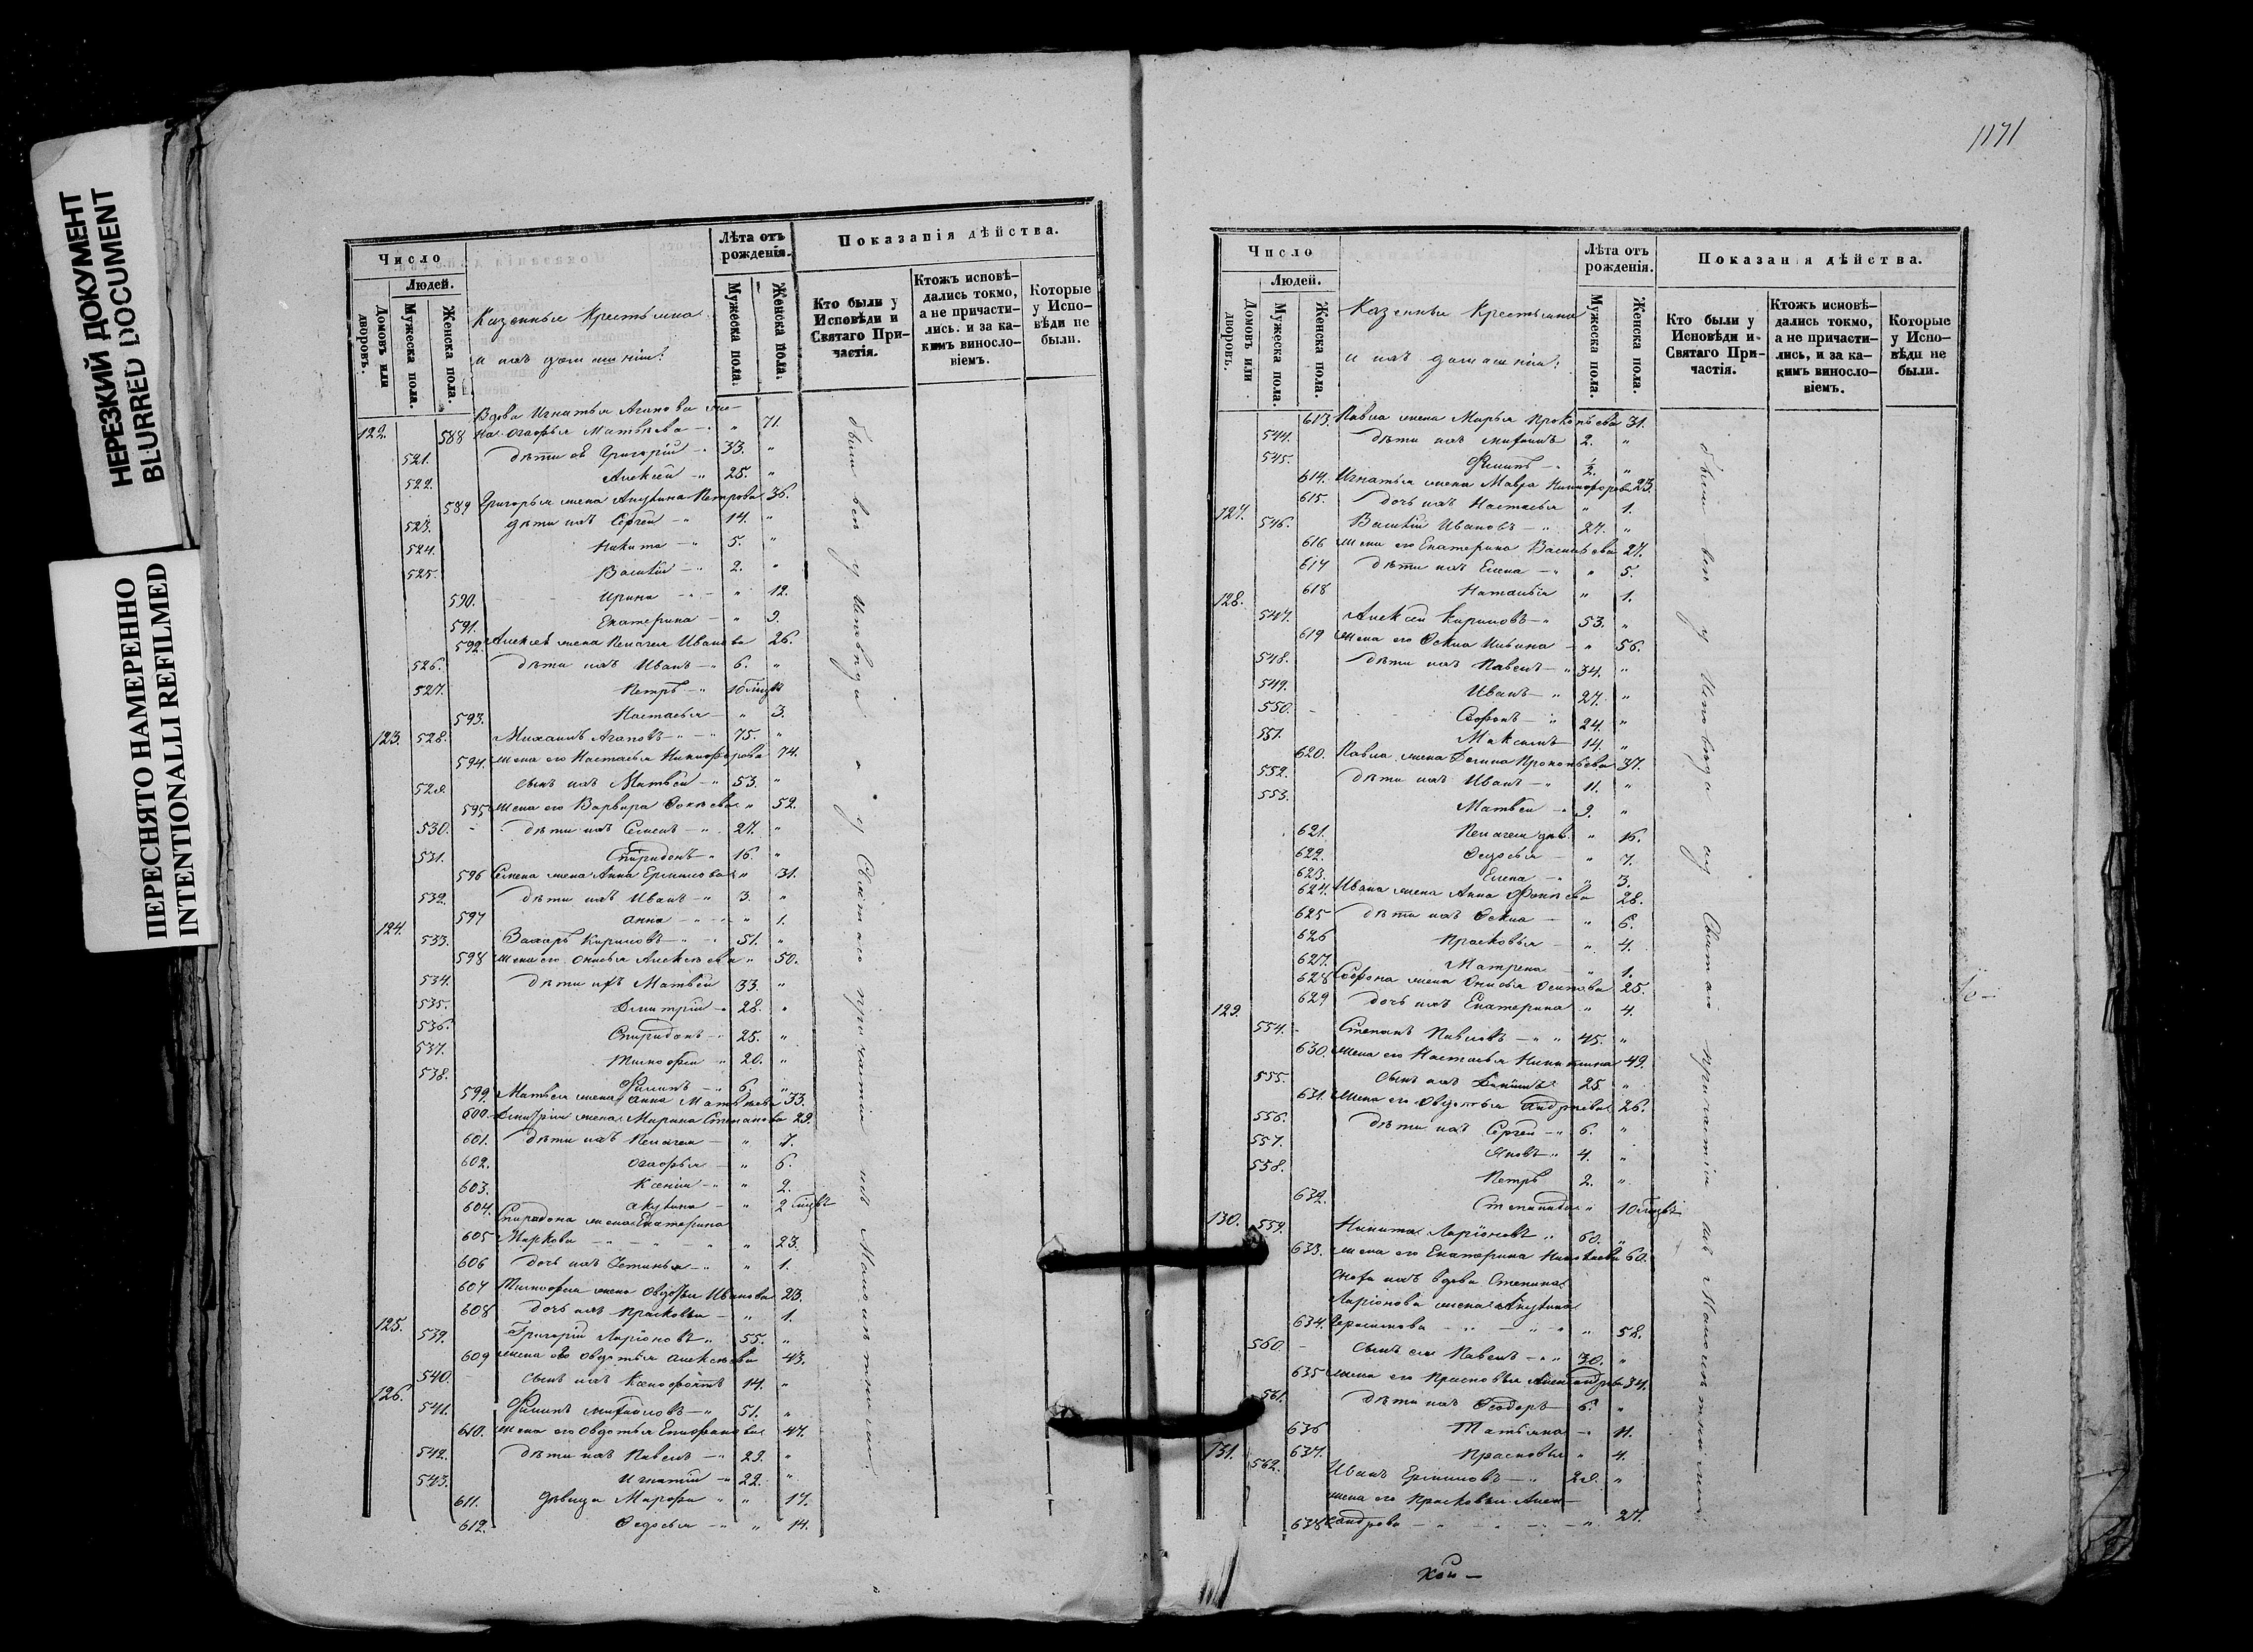 НЕРЕЗКИЙ ДОКУМЕНТ
BLURRED DOCUMENT
ПЕРЕСНЯТО НАМЕРЕННО
INTENTIONALLI REFILMED
Число
Людей.
Домовъ или дворовъ.
Мужеска пола.
Женска пола.
Казенные Крестьяна
и ихъ домашнiи:
Лѣта отъ рожденія.
Мужеска пола.
Женска пола.
Показанія дѣйства.
Кто были у Исповѣди и Святаго Причастія.
Ктожъ исповѣдались токмо, а не причастились. и за какимъ винословіемъ.
Которые у Исповѣди не были.
Вдова Игнатья Агапова же-
122. 588 на Агафья Матвѣева - " 71.
521. дѣти ея Григорій - " 33. "
522. Алексѣй - " 25. "
589 Григорья жена Акулина Петрова 36.
523. дѣти ихъ Сергей - " 14. "
524. Никита - " 5. "
525. Василій - " 2. "
590. Ирина - " - " 12.
591. Екатерина - " 9.
592. Алексѣя жена Пелагея Иванова 26.
526. дѣти ихъ Иванъ - " 6. "
527. Петръ - " 10
593. Настасья - " 3.
123. 528. Михаилъ Агаповъ - " - " 75. "
594. жена его Настасья Никифорова 74.
529. сынъ ихъ Матвѣй - " 53. "
595 жена его Варвара " 52.
530. дѣти ихъ Семенъ - " 27. "
531. Спиридонъ - " 16. "
596 Семена жена Анна Ермилова " 31.
532. дѣти ихъ Иванъ - " 3. "
597 Анна - " - " 1.
124. 533. Захаръ Кириловъ - " - " 51. "
598 жена его Анисья Алексѣева " 50.
534. дѣти ихъ Матвѣй 33. "
535. Дмитрій - " 28. "
536. Спиридонъ - " 25. "
537. Тимофей " 20. "
538. Филипъ - " 6. "
599. Матвѣя жена Анна Матвѣева 33.
600. Дмитрія жена Марина Степанова 29.
601. дѣти ихъ Пелагея - " 7.
602. Агафья - " 6.
603. Ксенія - " " 2.
604. Акулина - " 2
Спиридона жена Екатерина
605 Маркова - " - " - " " 23.
606 дочь ихъ Устинья - " " 1.
607 Тимофея жена Авдотья Иванова 23.
608 дочь ихъ Прасковья - " 1.
125. 539. Григорій Ларіоновъ " 55. "
609 жена его Авдотья Алексѣева 43.
540. сынъ ихъ Ксенофонтъ 14. "
126. 541. Филипъ Михайловъ - " 51. "
610. жена его Авдотья Епифанова 47.
542. дѣти ихъ Павелъ - " 29. "
543. Игнатій - " 22. "
611. дѣвица Марфа " " 17.
612. Федосья - " " 14.
были всѣ у Исповѣди и у Святаго причастія
1171
Число
Людей.
Домовъ или дворовъ.
Мужеска пола.
Женска пола.
Казенные Крестьяна
и ихъ домашнiи:
Лѣта отъ рожденія.
Мужеска пола.
Женска пола.
Показанія дѣйства.
Кто были у Исповѣди и Святаго Причастія.
Ктожъ исповѣдались токмо, а не причастились, и за какимъ винословіемъ.
Которые у Исповѣди не были.
613. Павла жена Марья Прокопьева 31.
544. дѣти ихъ 2. "
545. Филипъ - " ½. "
614. Игнатья жена Мавра Никифорова 23.
615. дочь ихъ Настасья " 1.
127. 546. Василій Ивановъ - " 27. "
616 жена его Екатерина Васильева 27.
617 дѣти ихъ Елена - " " 5.
618 Наталья " 1.
128. 547. Алексѣй Кириловъ - " 53. "
619 жена его - " 56.
548. дѣти ихъ Павелъ - " 34. "
549. Иванъ - " 27. "
550. Софонъ - " 24. "
551. Максимъ 14. "
620. Павла жена Прокопьева 37.
552. дѣти ихъ Иванъ - " 11. "
553. Матвѣй - 9. "
621. Пелагея " 16.
622. Федосья - " 7.
623. Елена - " " 3.
624. Ивана жена Анна 28.
625 дѣти ихъ - " 6.
626 Прасковья - " 4.
627. Матрена - " 1.
628 Софона жена Анисья Осипова 25.
629 дочь ихъ Екатерина " 4.
129. 554. Степанъ Павловъ - " " 45. "
630. жена его Настасья Никитина 49.
555. сынъ ихъ 25. "
631. жена его Авдотья Андреева 26.
556. дѣти ихъ Сергей - " 6. "
557. Яковъ " 4. "
558. Петръ 2. "
632. Степанида " 10
130. 559. Никита Ларіоновъ " 60. "
633. жена его Екатерина 60.
Сноха ихъ вдова Степана
Ларіонова жена Акулина
634. Герасимова - " - " - " 52.
560 - сынъ ея Павелъ - " " 30. "
635 жена его Прасковья Александрова 34.
561. дѣти ихъ Ѳеодоръ - 6. "
636 Татьяна - " 11.
637. Прасковья " 4.
131. 562. Иванъ Ермиловъ - " 28. "
жена его Прасковья Алек-
638 сандрова - " - " - " 27.
были всѣ у Исповѣди и у Святаго причастія